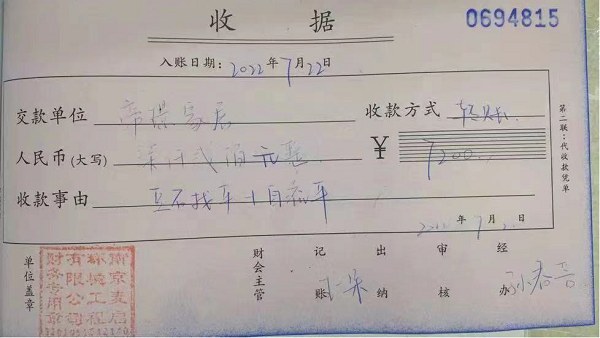 收 据
0694815
入账日期：2022年7月22日
交款单位 帝璟家居 收款方式 转账
人民币(大写) 柒仟贰佰元整 ￥ 7200
收款事由 豆石找平+自流平
第二联：代收款凭单
年 7 月 日
单位盖章
南京麦启
环境工程
有限公司
财务专用章
财会主管 记账 出纳 审核 经办